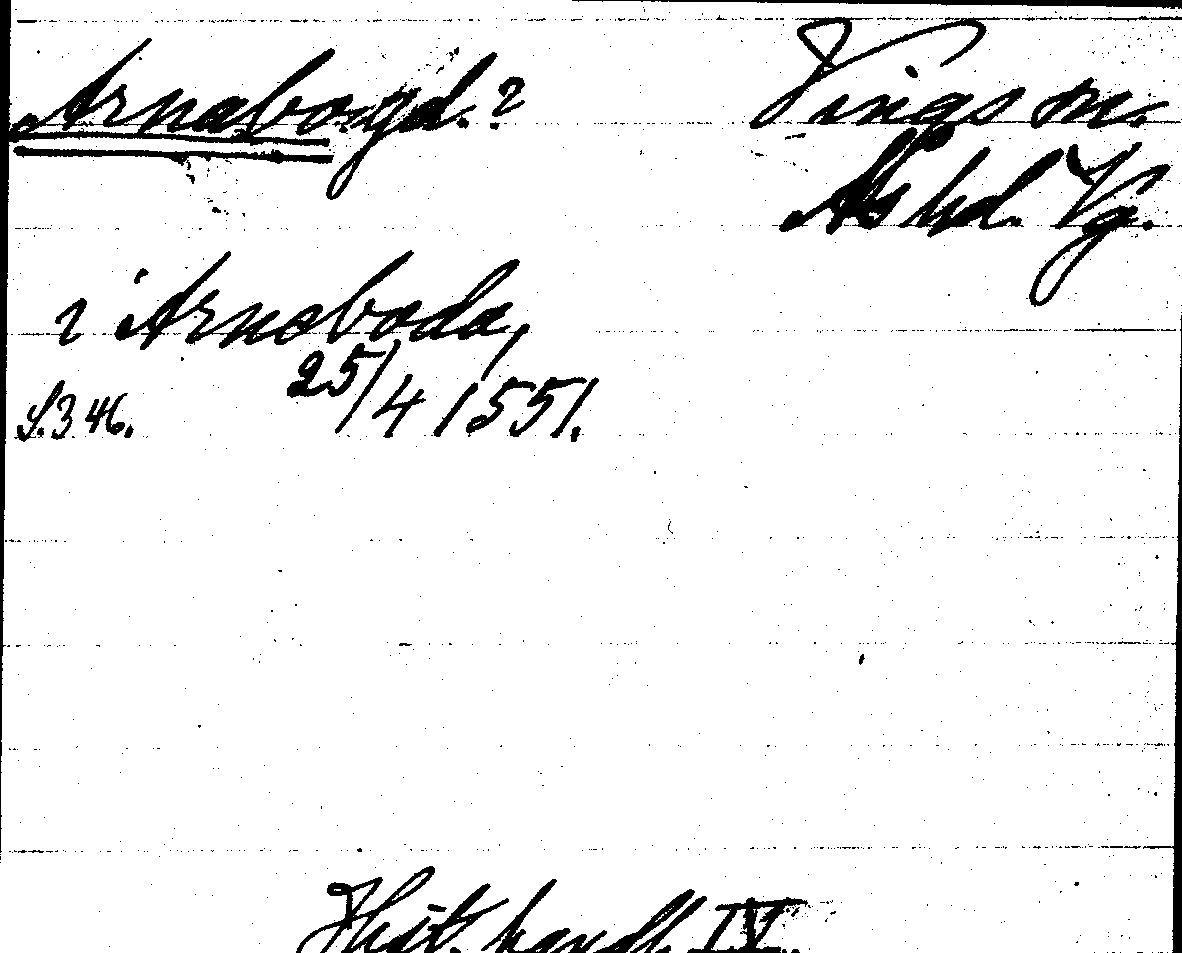 Arnabo gd.?
Vings sn.
Ås hd. Vg.
i Arnaboda,
25/4 1551.
S. 346.
Hist. handl. IV.